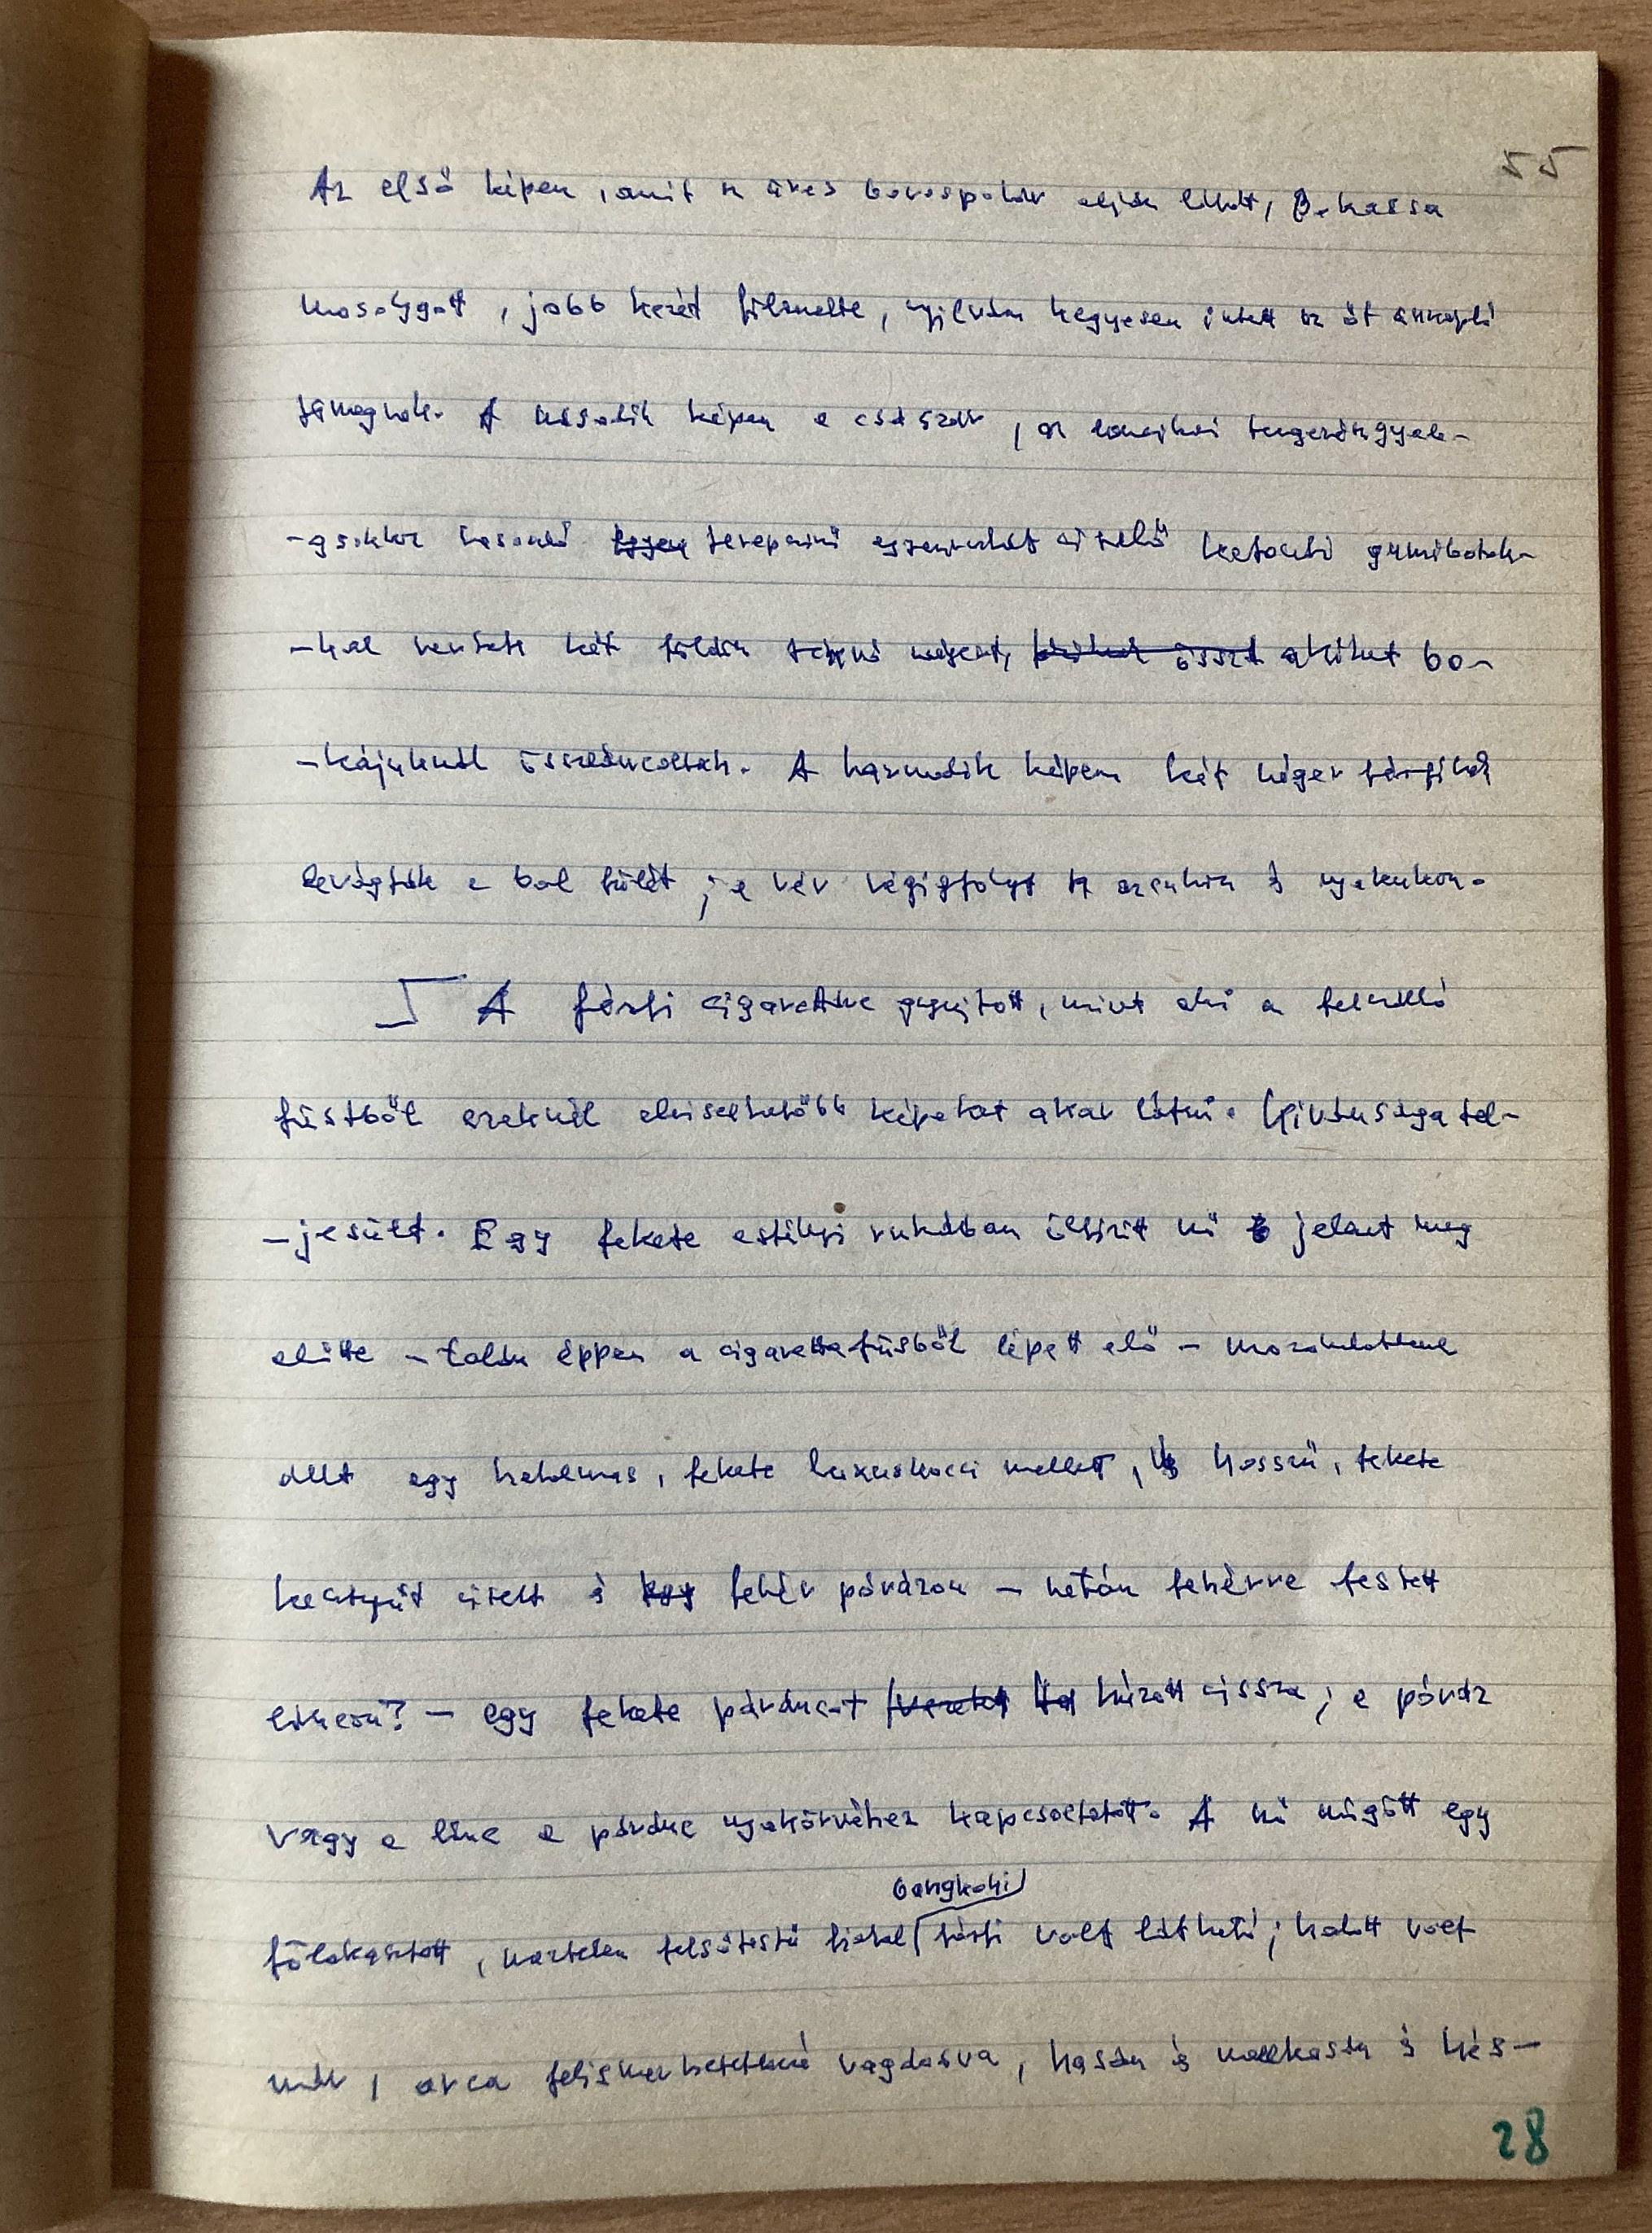 55
Az első képen, amit az üres borospohár alján látott, Bokassa
mosolygott, jobb kezét fölemelte, nyilván kegyesen intett az őt ünneplő
tömegnek. A második képen a császár, az amerikai tengerészgyalo-
-gsokhoz hasonló terepszínű egyenruhát viselő katonái gumibotok-
-kal vertek két földön néger, akiket bo-
-kájuknál összeláncoltak. A harmadik képen két néger férfinak
levágták a bal fülét; a vér végigfolyt az arcukon s nyakukon.
A férfi cigarettára gyújtott, mint aki a felszálló
füstből ezeknél elviselhetőbb képeket akar látni. Kívánsága tel-
-jesült. Egy fekete estélyi ruhában nő jelent meg
előtte – talán éppen a cigarettafüstből lépett elő – mozdulatlanul
állt egy hatalmas, fekete luxuskocsi mellett, hosszú, fekete
kesztyűt viselt s fehér pórázon – netán fehérre festett
láncon? – egy fekete párducot húzott vissza; a póráz
vagy a lánc a párduc nyakörvéhez kapcsoltatott. A nő mögött egy
bangkoki
fölakasztott, meztelen felsőtestű fiatal férfi volt látható; halott volt
már, arca felismerhetetlenné vagdosva, hasán s mellkasán s kés-
28